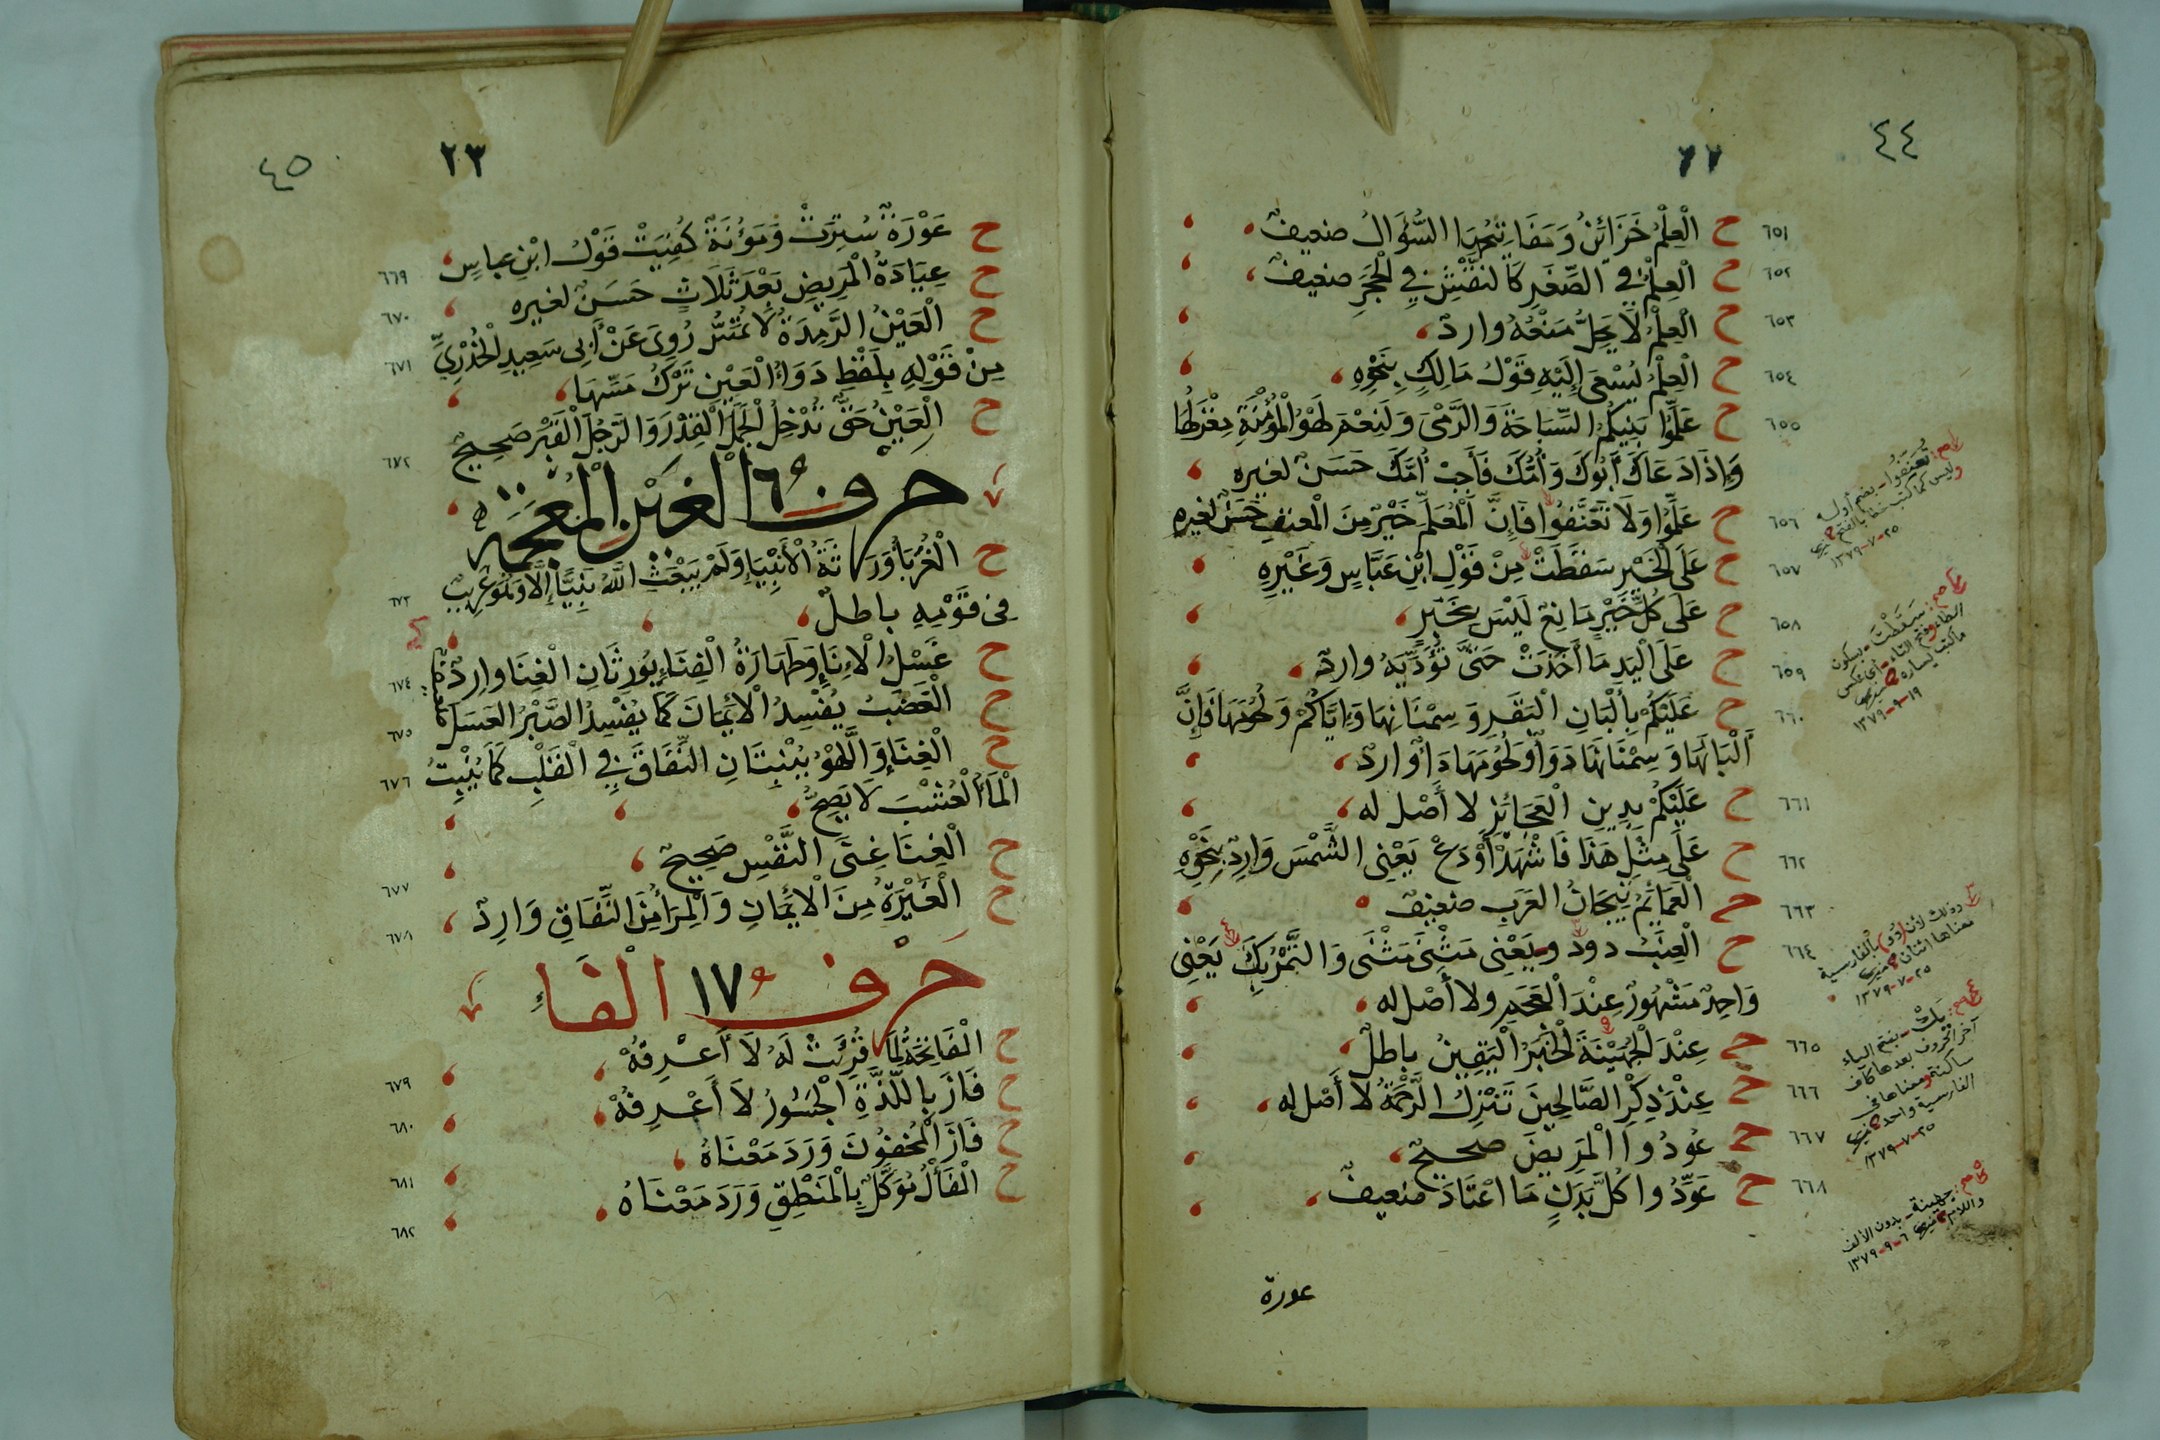 ٤٤
٦٥١ ح الْعِلْمُ خَزَائِنُ وَمَفَاتِيحُهَا السُّؤَالُ ضعيفٌ
٦٥٢ ح الْعِلْمُ فِي الصِّغَرِ كَالنَّقْشِ فِي الْحَجَرِ ضعيفٌ
٦٥٣ ح الْعِلْمُ لَا يَحِلُّ مَنْعُهُ واردٌ
٦٥٤ ح الْعِلْمُ يُسْعَى إِلَيْهِ قَوْلُ مَالِكٍ بِنَحْوِهِ
٦٥٥ ح عَلِّمُوا بَنِيكُمُ السِّبَاحَةَ وَالرَّمْىَ وَلَنِعْمَ لَهْوُ الْمُؤْمِنَةِ مِغْزَلُهَا
وَإِذَا دَعَاكَ أَبُوكَ وَأُمُّكَ فَأَجِبْ أُمَّكَ حَسَنٌ لغيره
٦٥٦ ح عَلِّمُوا وَلَا تَعَنَّفُوا فَإِنَّ الْمُعَلِّمَ خَيْرٌ مِنَ الْمعنفِ حَسَنٌ لغيره
٦٥٧ ح عَلَى الْخَبِيرِ سَقَطَتْ مِنْ قَوْلِ ابْنِ عَبَّاسٍ وَغَيْرِهِ
٦٥٨ ح عَلَى كُلِّ خَيْرٍ مَانِعٌ لَيْسَ بِخَبَرٍ
٦٥٩ ح عَلَى الْيَدِ مَا أَخَذَتْ حَتَّى تُؤَدِّيَهُ واردٌ
٦٦٠ ح عَلَيْكُمْ بِأَلْبَانِ الْبَقَرِ وَسِمْنَانِهَا وَإِيَّاكُمْ وَلُحُومَهَا فَإِنَّ
أَلْبَانَهَا وَسِمْنَانَهَا دَوَاءٌ وَلُحُومَهَا دَاءٌ واردٌ
٦٦١ ح عَلَيْكُمْ بِدِينِ الْعَجَائِزِ لا أَصْل له
٦٦٢ ح عَلَى مِثْلِ هَذَا فَاشْهَدْ أَوْ دَعْ يَعْنِى الشَّمْسَ وَارِدٌ بِنَحْوِهِ
٦٦٣ ح الْعَمَائِمُ تِيجَانُ العَرَبِ ضعيفٌ
٦٦٤ ح الْعِنَبُ دود و يَعْنِى مَثْنَى مَثْنَى وَالتَّمْرُ يَكْ يَعْنِى
وَاحِدٌ مَشْهُورٌ عِنْدَ الْعَجَمِ ولا أَصْل له
٦٦٥ ح عِنْدَ الْجُهَيْنَةَ الْخَبَرُ الْيَقِينُ باطلٌ
٦٦٦ ح عِنْدَ ذِكْرِ الصَّالِحِينَ تَنْزِلُ الرَّحْمَةُ لَا أَصْل له
٦٦٧ ح عُودُوا الْمَرِيضَ صحيحٌ
٦٦٨ ح عَوِّدُوا كُلَّ بَدَنٍ مَا اعْتَادَ ضعيفٌ
عورة
تعنفوا - بضم أوله
وليس كما كتب خطأ بالفتح
٢٥-٧-١٣٧٩
سَقَطْتَ - بسكون
الطاء وفتح التاء - أى عكس
ما كتب يساره
١٩-٩-١٣٧٩
وذلك لأن (دو) بالفارسية
معناها اثنان
٢٥-٧-١٣٧٩
يك - بفتح الياء
آخر الحروف بعدها كاف
ساكنة ومعناها فى
الفارسية واحد
٢٥-٧-١٣٧٩
جهينة - بدون الألف
واللام
٦-٩-١٣٧٩
٤٥
٢٣
ح عَوْرَةٌ سُتِرَتْ وَمَؤُنَةٌ كُفِيَتْ قَوْلُ ابْنِ عباسٍ ٦٦٩
ح عِيَادَةُ الْمَرِيضِ بَعْدَ ثَلَاثٍ حَسَنٌ لغيره ٦٧٠
ح الْعَيْنُ الرَّمِدَةُ لَا تُمَسُّ رُوِىَ عَنْ أَبِى سَعِيدٍ الْخُدْرِيِّ ٦٧١
مِنْ قَوْلِهِ بِلَفْظِ دَوَاءُ الْعَيْنِ تَرْكُ مَسِّهَا
ح الْعَيْنُ حَقٌّ تُدْخِلُ الْجَمَلَ الْقِدْرَ وَالرَّجُلَ الْقَبْرَ صَحِيحٌ ٦٧٢
حرف الْغَيْنِ الْمُعْجَمَة
ح الْغُرَبَاءُ وَرَثَةُ الْأَنْبِيَاءِ وَلَمْ يَبْعَثِ اللهُ نَبِيًّا إِلَّا وَهُوَ غَرِيبٌ ٦٧٣
فِى قَوْمِهِ باطلٌ
ح غَسْلُ الْإِنَاءِ وَطَهَارَةُ الْفِنَاءِ يُورِثَانِ الْغِنَا واردٌ ٦٧٤
ح الْغَضَبُ يُفْسِدُ الْأِيمَانَ كَمَا يُفْسِدُ الصَّبْرُ الْعَسَلَ ٦٧٥
ح الْغِنَاءُ وَاللَّهْوُ يُنْبِتَانِ النِّفَاقَ فِي الْقَلْبِ كَمَا يُنْبِتُ ٦٧٦
الْمَاءُ الْعُشْبَ لَا يَصِحُّ
ح الْغِنَا غِنَى النَّفْسِ صَحِيحٌ ٦٧٧
ح الْغَيْرَةُ مِنَ الْأِيمَانِ وَالْمِرَاءُ مِنَ النِّفَاقِ وَارِدٌ ٦٧٨
حَرْف ١٧ الْفَاءِ
ح الْفَاتِحَةُ لِمَا قُرِئَتْ لَهُ لَا أَعْرِفُهُ ٦٧٩
ح فَازَ بِاللَّذَّةِ الْجَسُورُ لَا أَعْرِفُهُ ٦٨٠
ح فَازَ الْمُخِفُّونَ وَرَدَ مَعْنَاهُ ٦٨١
ح الْفَأْلُ مُوَكَّلٌ بِالْمَنْطِقِ وَرَدَ مَعْنَاهُ ٦٨٢